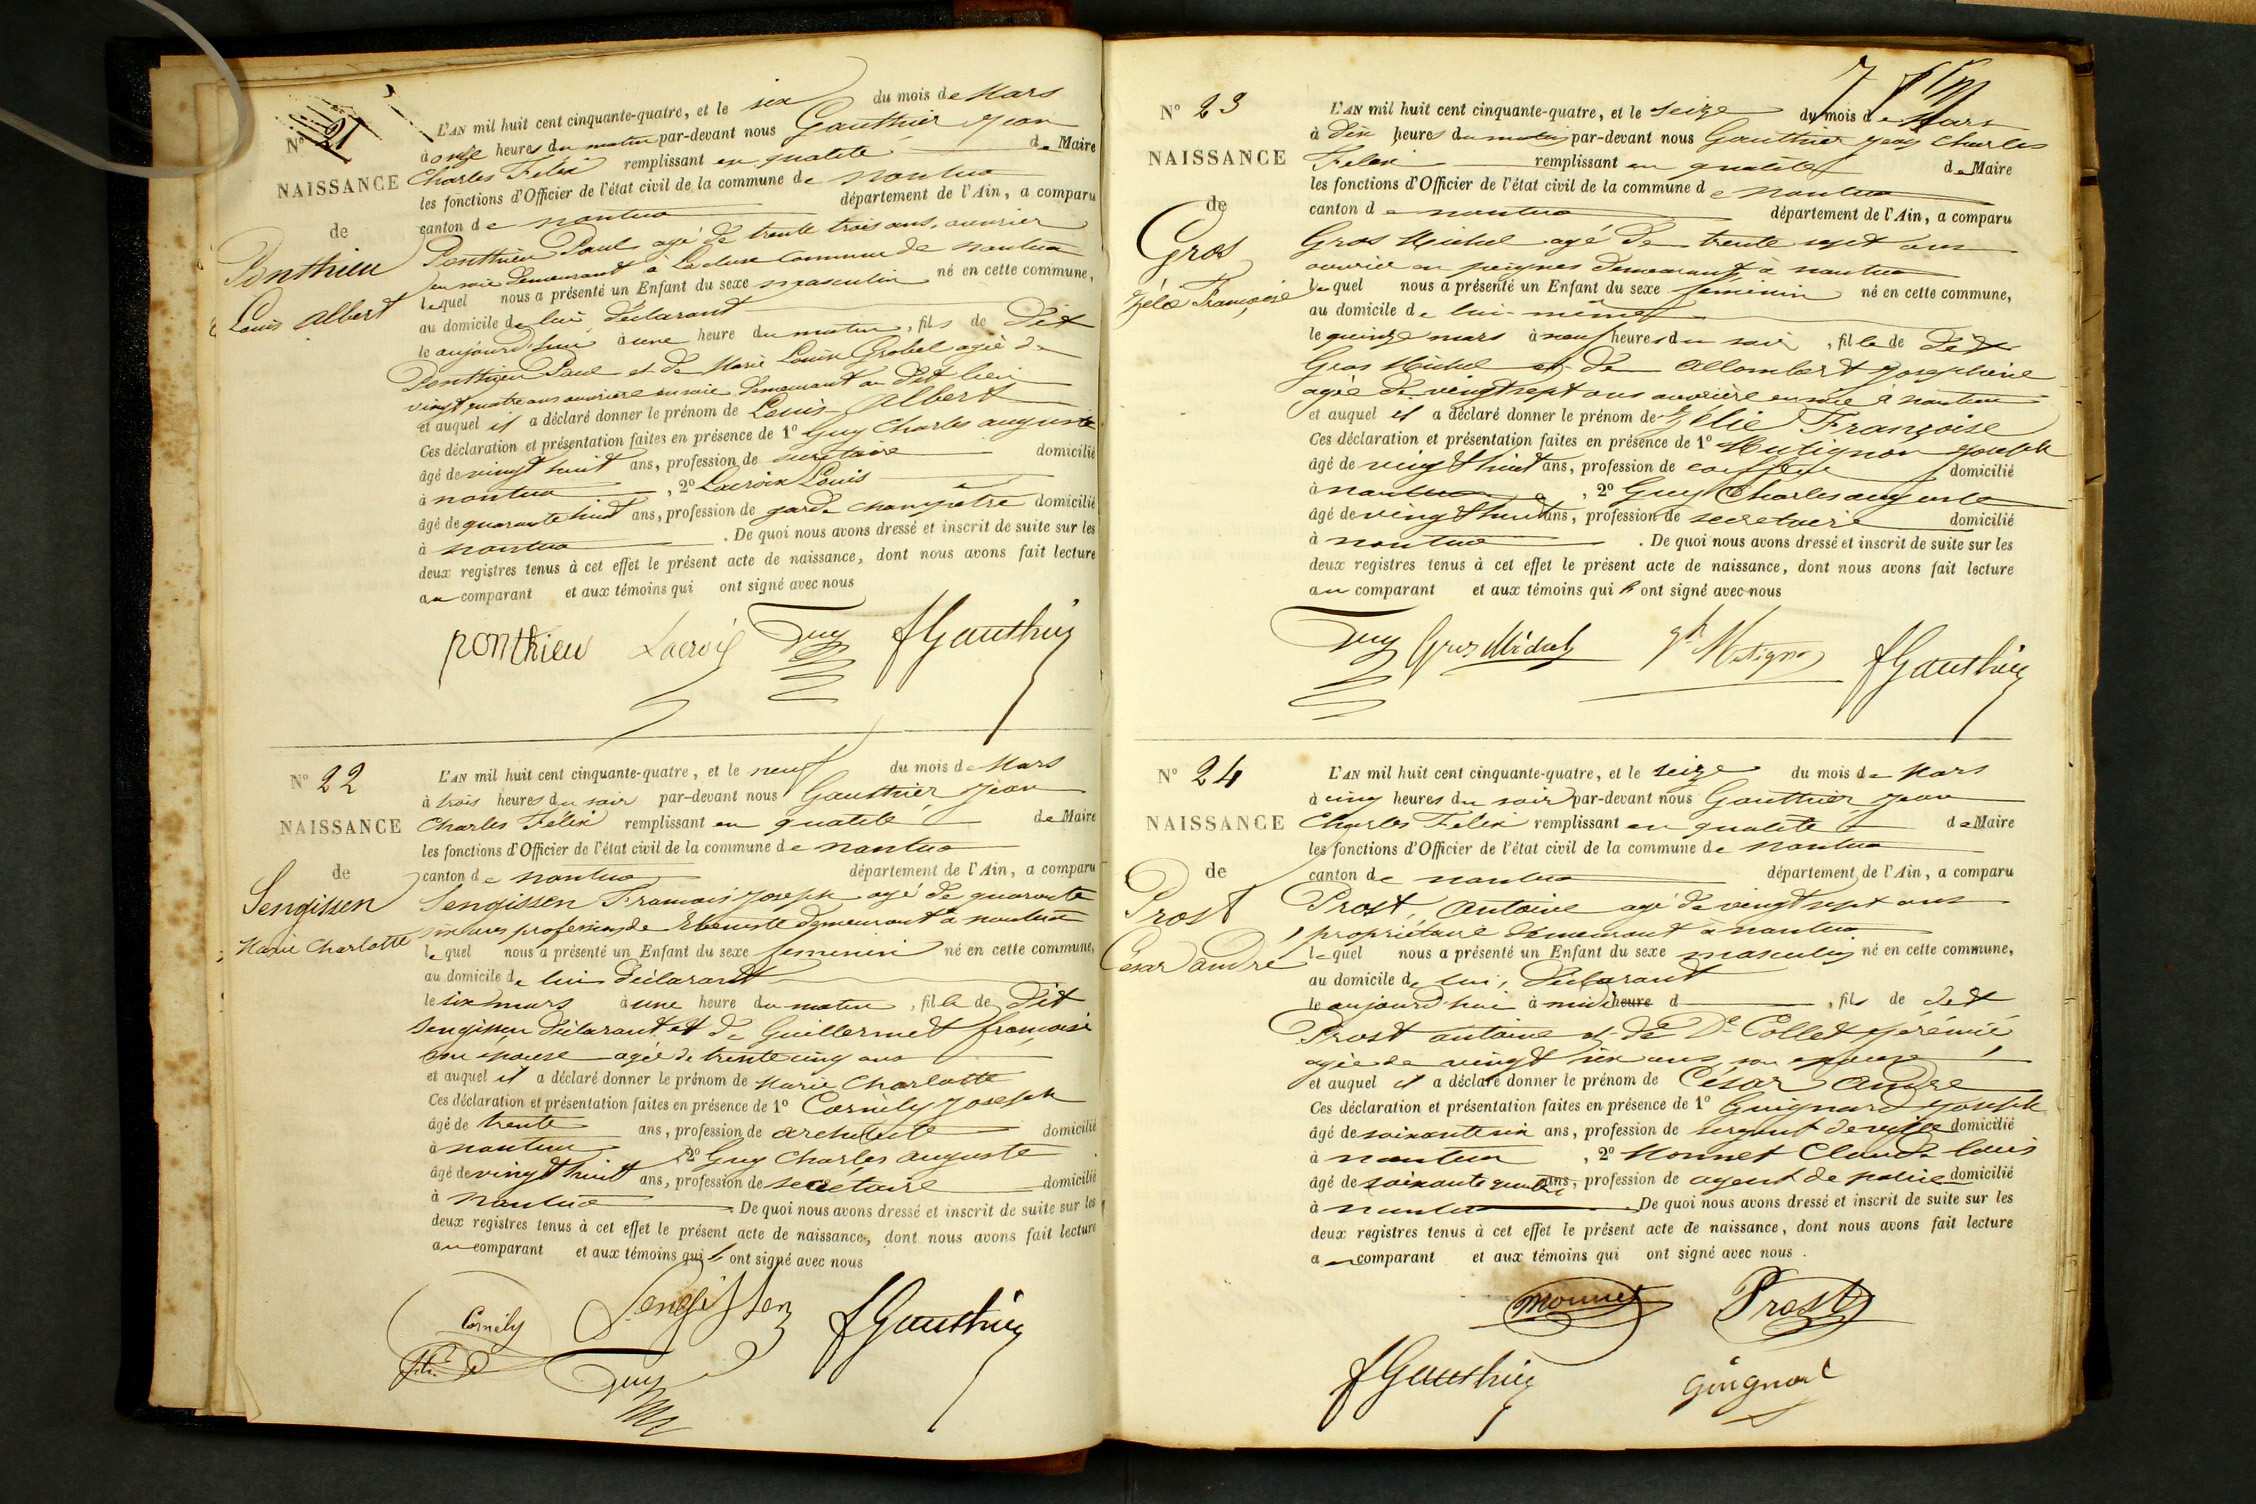 N° 21
NAISSANCE
de
Ponthieu
Louis Albert
L'AN mil huit cent cinquante-quatre, et le six du mois de Mars
à onze heures du matin par-devant nous Gauthier Jean
Charles Félix remplissant en qualité de Maire
les fonctions d'Officier de l'état civil de la commune de nantua
canton de nantua département de l'Ain, a comparu
Ponthieu Paul agé de trente trois ans, ouvrier
en soie demeurant à Lacluse Commune de nantua
lequel nous a présenté un Enfant du sexe masculin né en cette commune,
au domicile de lui déclarant
le aujourd'hui à une heure du matin, fils de dit
Ponthieu Paul et de Marie Louise Grobel agée de
vingt quatre ans ouvrière en soie demeurant au dit lieu
et auquel il a déclaré donner le prénom de Louis Albert
Ces déclaration et présentation faites en présence de 1° Guy Charles auguste
âgé de vingt huit ans, profession de secrétaire domicilié
à nantua, 2° Lacroix Louis
âgé de quarante huit ans, profession de garde champêtre domicilié
à nantua. De quoi nous avons dressé et inscrit de suite sur les
deux registres tenus à cet effet le présent acte de naissance, dont nous avons fait lecture
au comparant et aux témoins qui ont signé avec nous
ponthieu Lacroix Guy fGauthier
N° 22
NAISSANCE
de
Sengissen
Marie Charlotte
L'AN mil huit cent cinquante-quatre, et le neuf du mois de Mars
à trois heures du soir par-devant nous Gauthier Jean
Charles Félix remplissant en qualité de Maire
les fonctions d'Officier de l'état civil de la commune de nantua
canton de nantua département de l'Ain, a comparu
Sengissen Francois Joseph agé de quarante
six ans profession de Ebeniste demeurant à nantua
lequel nous a présenté un Enfant du sexe feminin né en cette commune,
au domicile de lui déclarant
le six mars à une heure du matin, fille de dit
Sengissen déclarant et de Guillermet françoise
son épouse agée de trente cinq ans
et auquel il a déclaré donner le prénom de Marie Charlotte
Ces déclaration et présentation faites en présence de 1° Cornély Joseph
âgé de trente ans, profession de architecte domicilié
à nantua 2° Guy Charles Auguste
âgé de vingt huit ans, profession de secrétaire domicilié
à nantua De quoi nous avons dressé et inscrit de suite sur les
deux registres tenus à cet effet le présent acte de naissance, dont nous avons fait lecture
au comparant et aux témoins qui ont signé avec nous
Cornély Sengissen fGauthier
Guy
7
N° 23
NAISSANCE
de
Gros
Zélie Françoise
L'AN mil huit cent cinquante-quatre, et le seize du mois de Mars
à dix heures du matin par-devant nous Gauthier Jean Charles
Félix remplissant en qualité de Maire
les fonctions d'Officier de l'état civil de la commune de nantua
canton de nantua département de l'Ain, a comparu
Gros Michel agé de trente sept ans
ouvrier en peignes demeurant à nantua
lequel nous a présenté un Enfant du sexe féminin né en cette commune,
au domicile de lui-même
le quinze mars à neuf heures du soir, fille de dit
Gros Michel et de Allombert Josephine
agée de vingt sept ans ouvrière en soie à nantua
et auquel il a déclaré donner le prénom de Zélie Françoise
Ces déclaration et présentation faites en présence de 1° Mutignon Joseph
âgé de vingt huit ans, profession de coiffeur domicilié
à nantua, 2° Guy Charles auguste
âgé de vingt huit ans, profession de secretaire domicilié
à nantua. De quoi nous avons dressé et inscrit de suite sur les
deux registres tenus à cet effet le présent acte de naissance, dont nous avons fait lecture
au comparant et aux témoins qui ont signé avec nous
Guy Gros Michel Mutignon fGauthier
N° 24
NAISSANCE
de
Prost
César andré
L'AN mil huit cent cinquante-quatre, et le seize du mois de Mars
à cinq heures du soir par-devant nous Gauthier Jean
Charles Félix remplissant en qualité de Maire
les fonctions d'Officier de l'état civil de la commune de nantua
canton de nantua département de l'Ain, a comparu
Prost, Antoine agé de vingt sept ans
propriétaire demeurant à nantua
lequel nous a présenté un Enfant du sexe masculin né en cette commune,
au domicile de lui, déclarant
le aujourd'hui à midi heure d , fils de dit
Prost antoine et de De Collet Jérémie
agée de vingt six ans, son épouse
et auquel il a déclaré donner le prénom de César André
Ces déclaration et présentation faites en présence de 1° Guignard Joseph
âgé de soixante six ans, profession de sergent de ville domicilié
à nantua, 2° Monnet Claude Louis
âgé de soixante quatre ans, profession de agent de police domicilié
à nantua De quoi nous avons dressé et inscrit de suite sur les
deux registres tenus à cet effet le présent acte de naissance, dont nous avons fait lecture
au comparant et aux témoins qui ont signé avec nous.
Monnet Prost
fGauthier Guignard